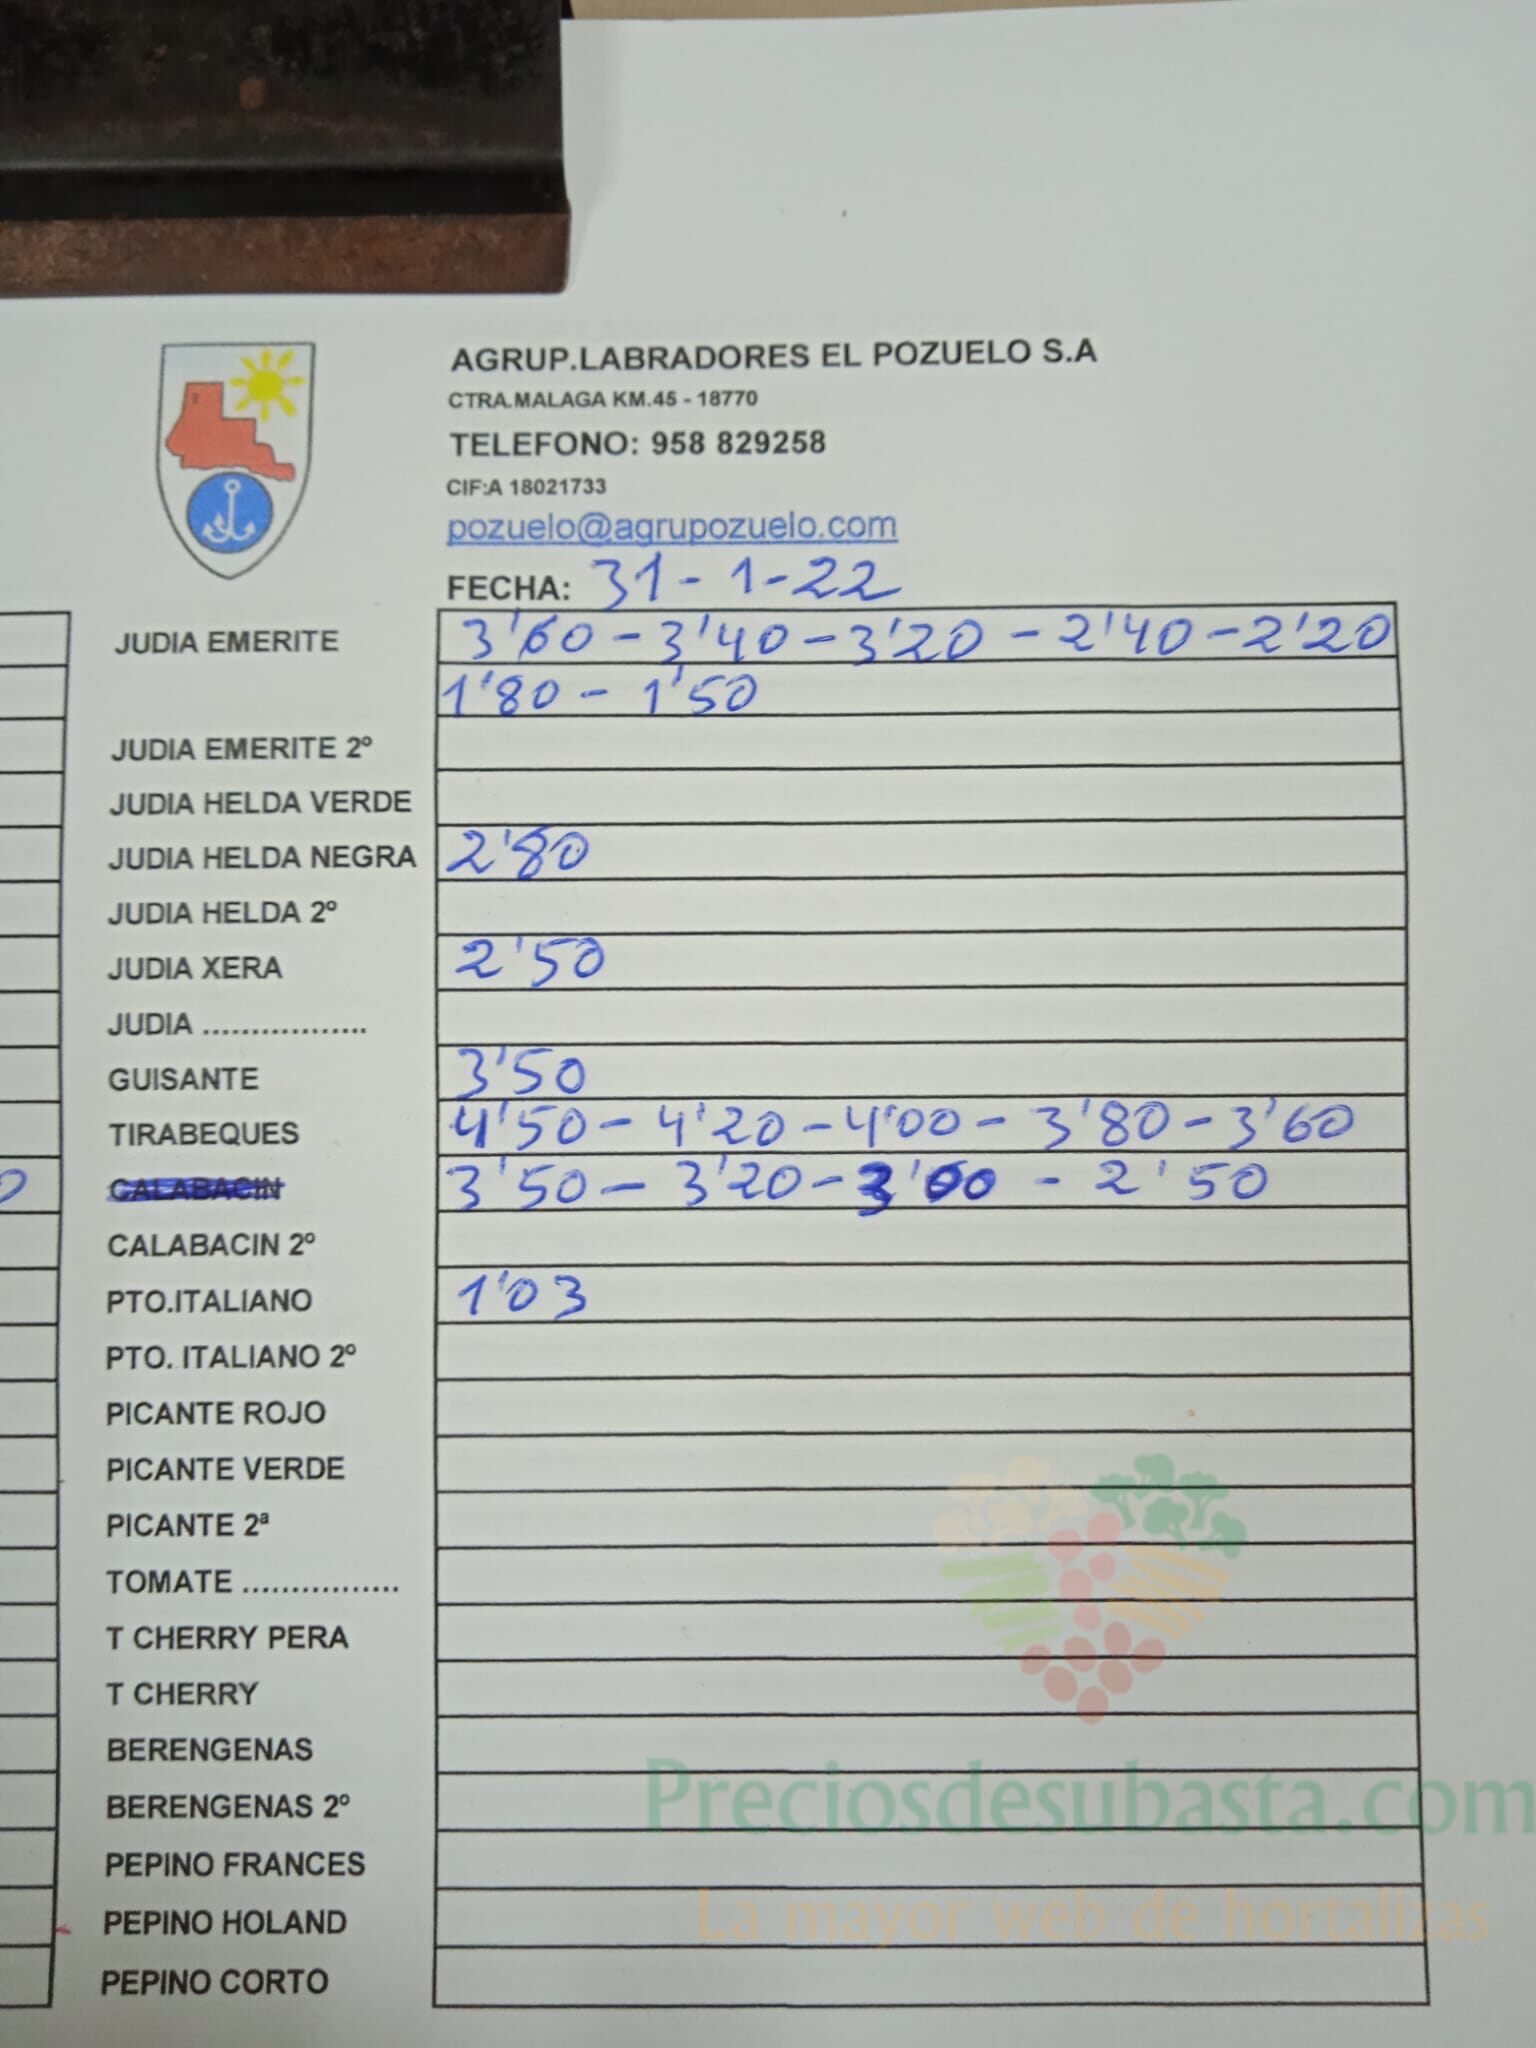 AGRUP.LABRADORES EL POZUELO S.A
CTRA.MALAGA KM.45 - 18770
TELEFONO: 958 829258
CIF:A 18021733
pozuelo@agrupozuelo.com
FECHA: 31-1-22
JUDIA EMERITE 3'60 - 3'40 - 3'20 - 2'40 - 2'20
1'80 - 1'50
JUDIA EMERITE 2º
JUDIA HELDA VERDE
JUDIA HELDA NEGRA 2'80
JUDIA HELDA 2º
JUDIA XERA 2'50
JUDIA .................
GUISANTE 3'50
TIRABEQUES 4'50 - 4'20 - 4'00 - 3'80 - 3'60
CALABACIN 3'50 - 3'20 - 3'00 - 2'50
CALABACIN 2º
PTO.ITALIANO 1'03
PTO. ITALIANO 2º
PICANTE ROJO
PICANTE VERDE
PICANTE 2ª
TOMATE ................
T CHERRY PERA
T CHERRY
BERENGENAS
BERENGENAS 2º
Preciosdesubasta.com
PEPINO FRANCES
La mayor web de hortalizas
PEPINO HOLAND
PEPINO CORTO